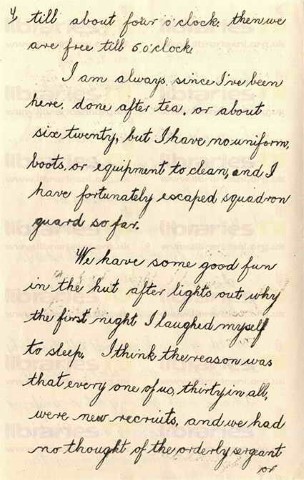 y till about four o'clock, then we
are free till 6 o'clock.
I am always, since I've been
here, done after tea, or about
six twenty, but I have no uniform,
boots, or equipment to clean, and I
have fortunately escaped squadron
guard so far.
We have some good fun
in the hut after lights out why
the first night I laughed myself
to sleep, I think the reason was
that every one of us, thirty in all,
were new recruits, and we had
no thought of the orderly sergeant
or